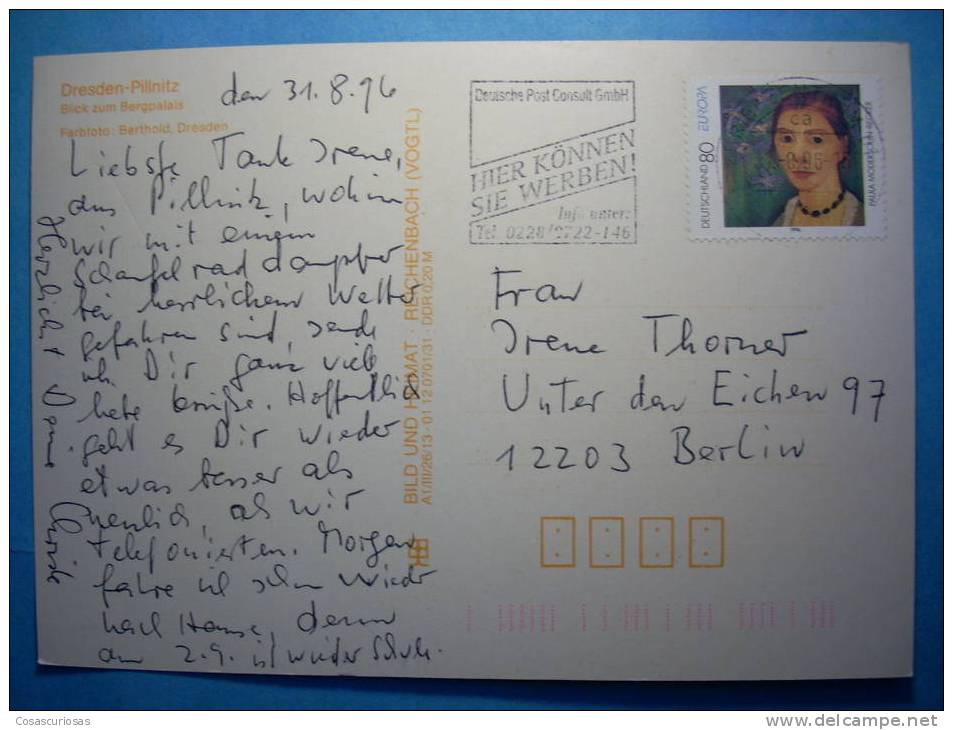 Dresden-Pillnitz
Blick zum Bergpalais
Farbfoto: Berthold, Dresden
den 31.8.96
Liebste Tante Irene,
aus Pillnitz, wohin
wir mit einem
Schaufelraddampfer
bei herrlichem Wetter
gefahren sind, sende
ich Dir ganz viele
liebe Grüße. Hoffentlich
geht es Dir wieder
etwas besser als
neulich, als wir
telefonierten. Morgen
fahre ich schon wieder
nach Hause, denn
am 2.9. ist wieder Schule.
Herzlichst
BILD UND HEIMAT · REICHENBACH (VOGTL)
A1/III/26/13-01 12 0701/31 · DDR 0,20 M
Deutsche Post Consult GmbH
HIER KÖNNEN
SIE WERBEN!
Info unter:
Tel. 0228/9722-146
DEUTSCHLAND 80 EUROPA
PAULA MODERSOHN-BECKER
Frau
Irene Thorner
Unter den Eichen 97
12203 Berlin
Cosascuriosas
www.delcampe.net